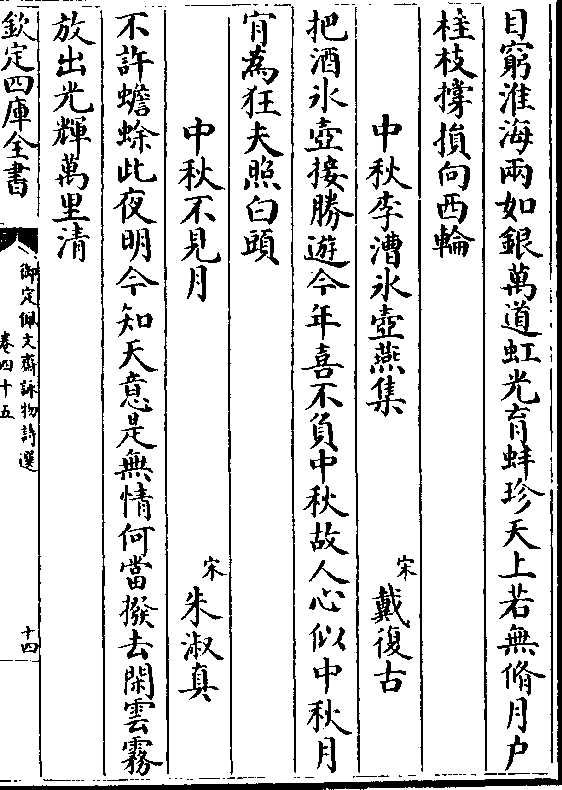 目窮淮海兩如銀萬道虹光育蚌珍天上若無脩月户
桂枝撑損向西輪
中秋李漕氷壺燕集 宋 戴復古
把酒氷壺接勝遊今年喜不負中秋故人心似中秋月
肎為狂夫照白頭
中秋不見月 宋 朱淑真
不許蟾蜍此夜明今知天意是無情何當撥去閑雲霧
放出光輝萬里清
欽定四庫全書
御定佩文齋詠物詩選
卷四十五
十四